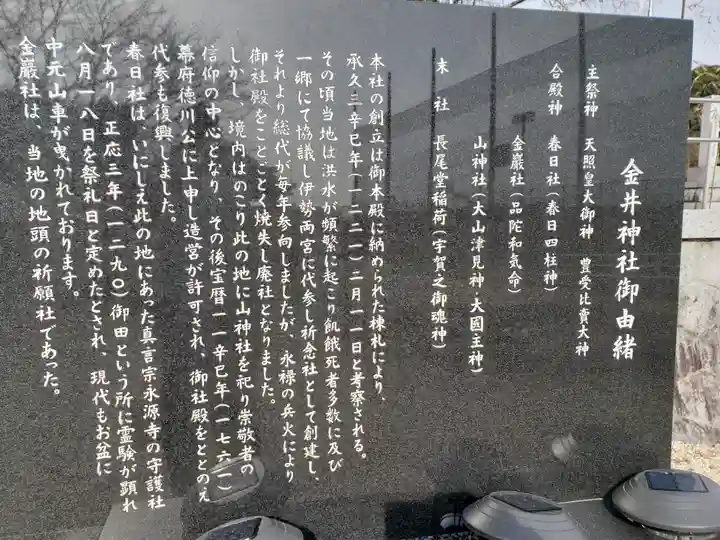 金井神社御由緒
主祭神 天照皇大御神 豊受比賣大神
合殿神 春日社(春日四柱神)
金巌社(品陀和気命)
山神社(大山津見神・大國主神)
末社 長尾堂稲荷(宇賀之御魂神)
本社の創立は御本殿に納められた棟札により、
承久三辛巳年(一二二一)二月一一日と考察される。
その頃当地は洪水が頻繁に起こり飢餓死者多数に及び
一郷にて協議し伊勢両宮に代参し祈念社として創建し、
それより総代が毎年参向しましたが、永禄の兵火により
御社殿をことごとく焼失し廃社となりました。
しかし、境内はのこり此の地に山神社を祀り崇敬者の
信仰の中心となり、その後宝暦一一辛巳年(一七六一)
幕府徳川公に上申し造営が許可され、御社殿をととのえ
代参も復興しました。
春日社は、いにしえ此の地にあった真言宗永源寺の守護社
であり、正応三年(一二九〇)御田という所に霊験が顕れ
八月一八日を祭礼日と定めたとされ、現代もお盆に
中元山車が曳かれております。
金巌社は、当地の地頭の祈願社であった。